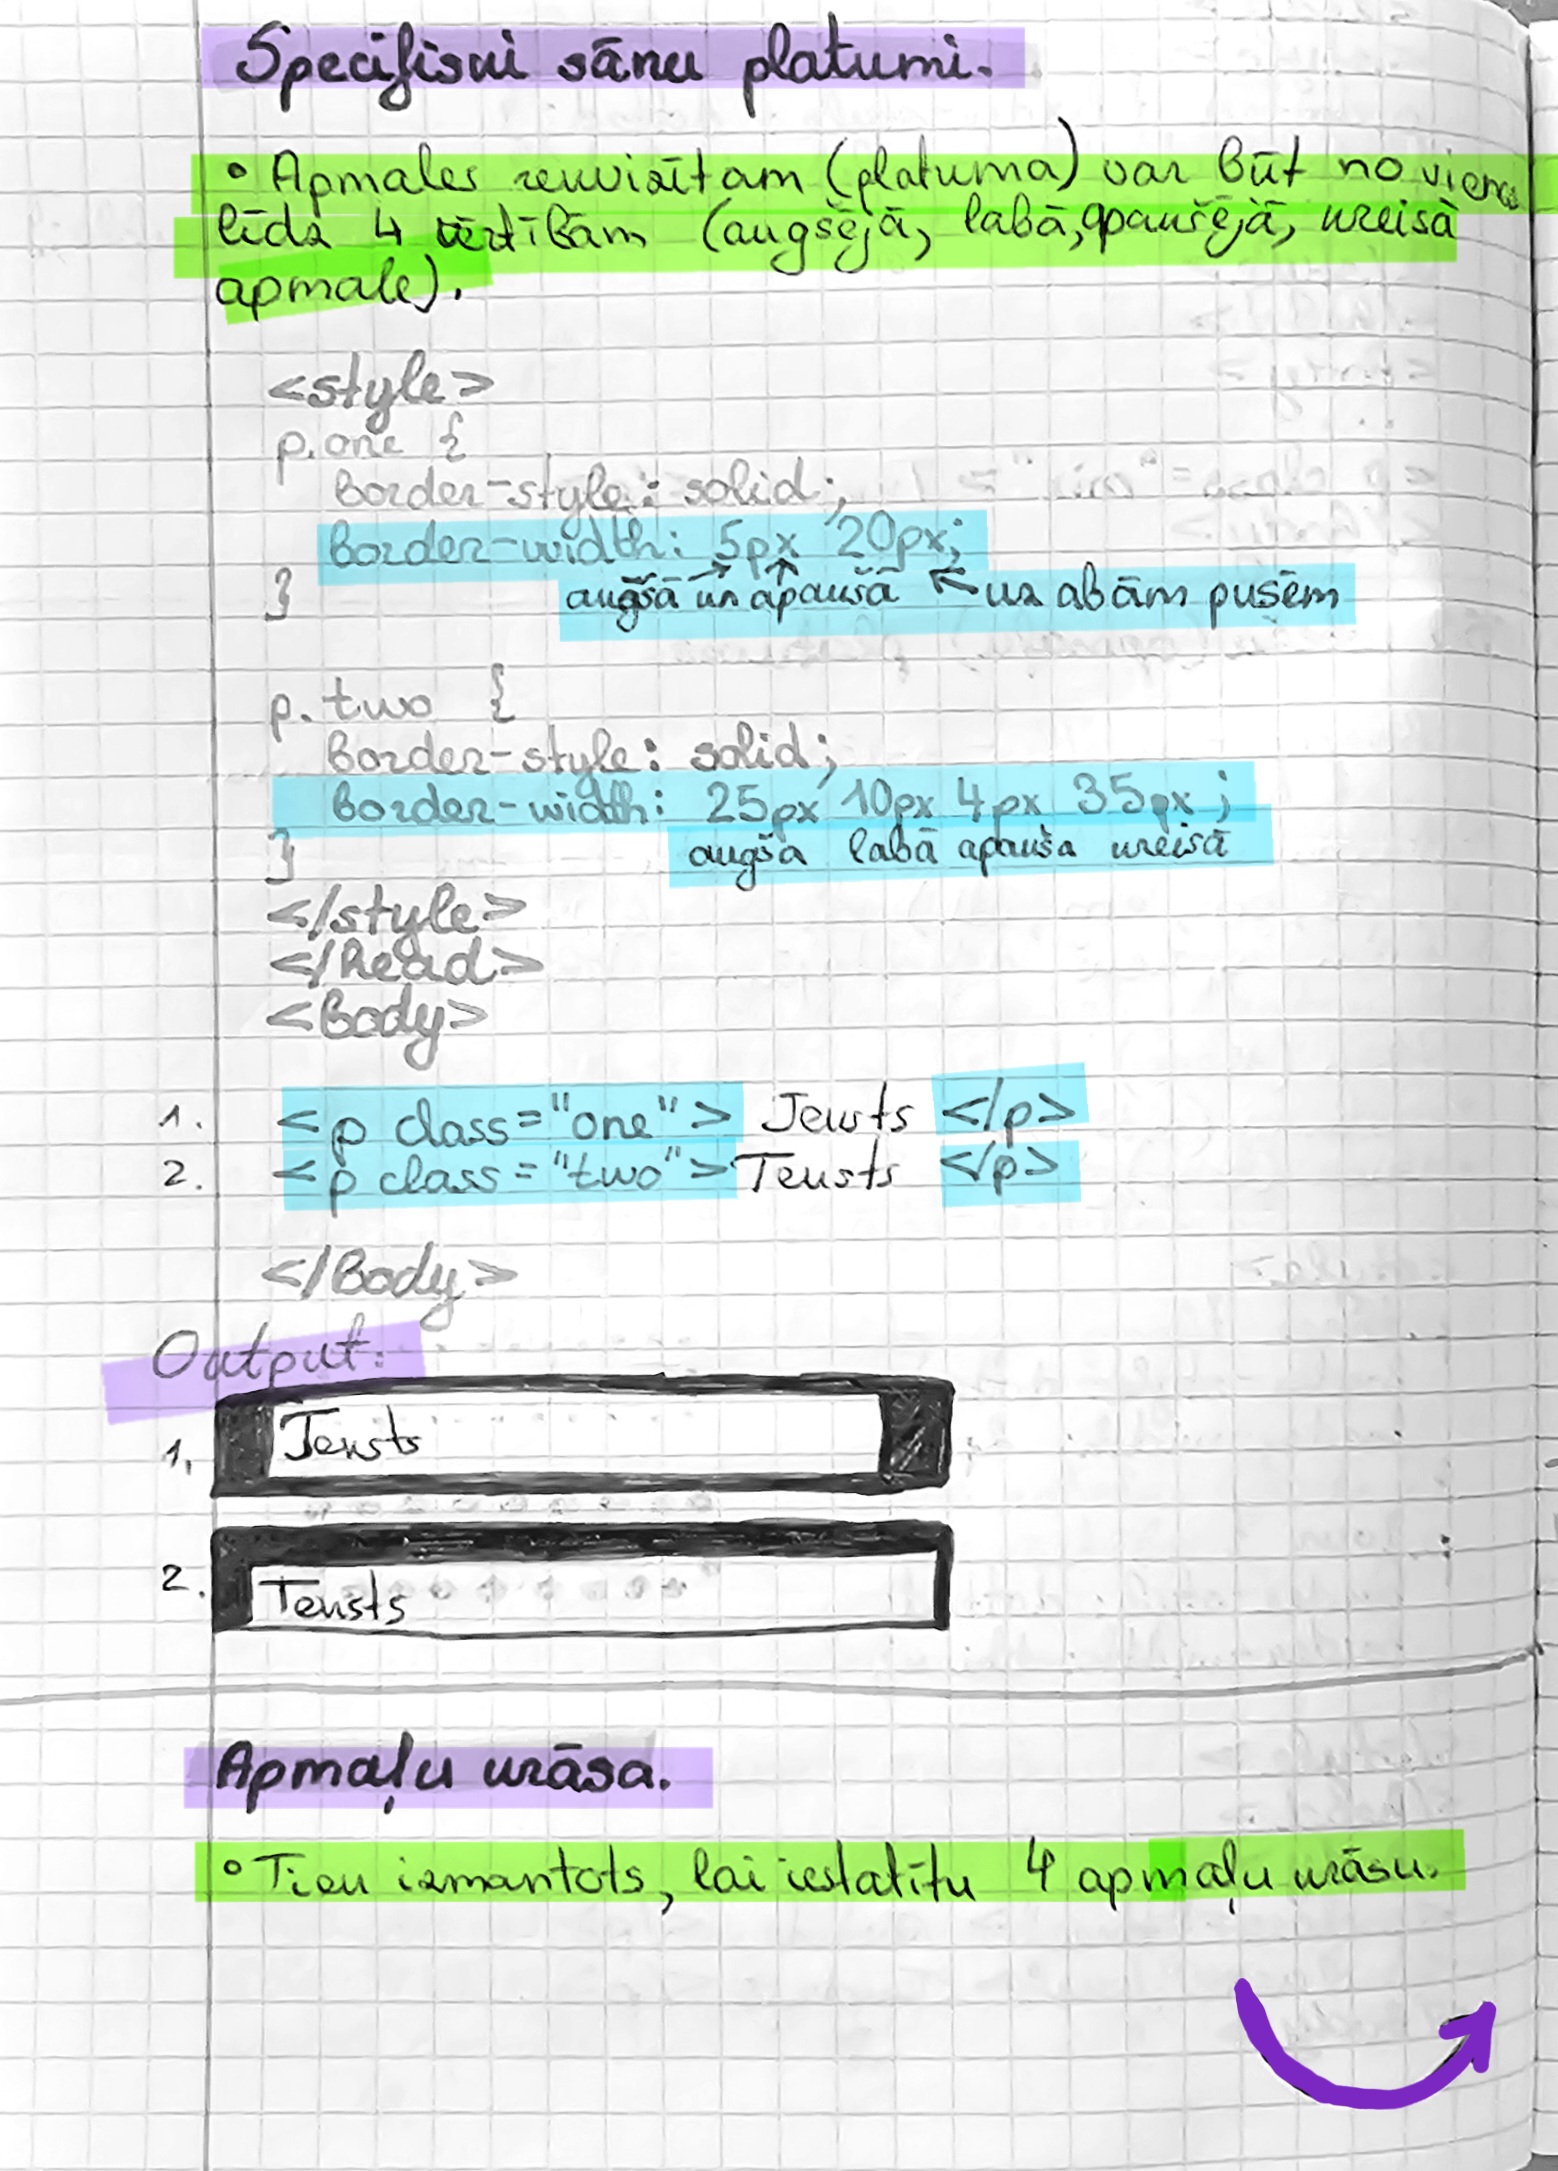 Specifiski sānu platumi.
• Apmales rekvizītam (platuma) var būt no vienas
līdz 4 vērtībām (augšējā, labā, apakšējā, kreisā
apmale).
<style>
p.one {
border-style: solid;
border-width: 5px 20px;
} augšā un apakšā uz abām pusēm
p.two {
border-style: solid;
border-width: 25px 10px 4px 35px;
} augša labā apakša kreisā
</style>
</head>
<body>
1. <p class="one"> Teksts </p>
2. <p class="two"> Teksts </p>
</body>
Output:
1. Teksts
2. Teksts
Apmaļu krāsa.
• Tiek izmantots, lai iestatītu 4 apmaļu krāsu.